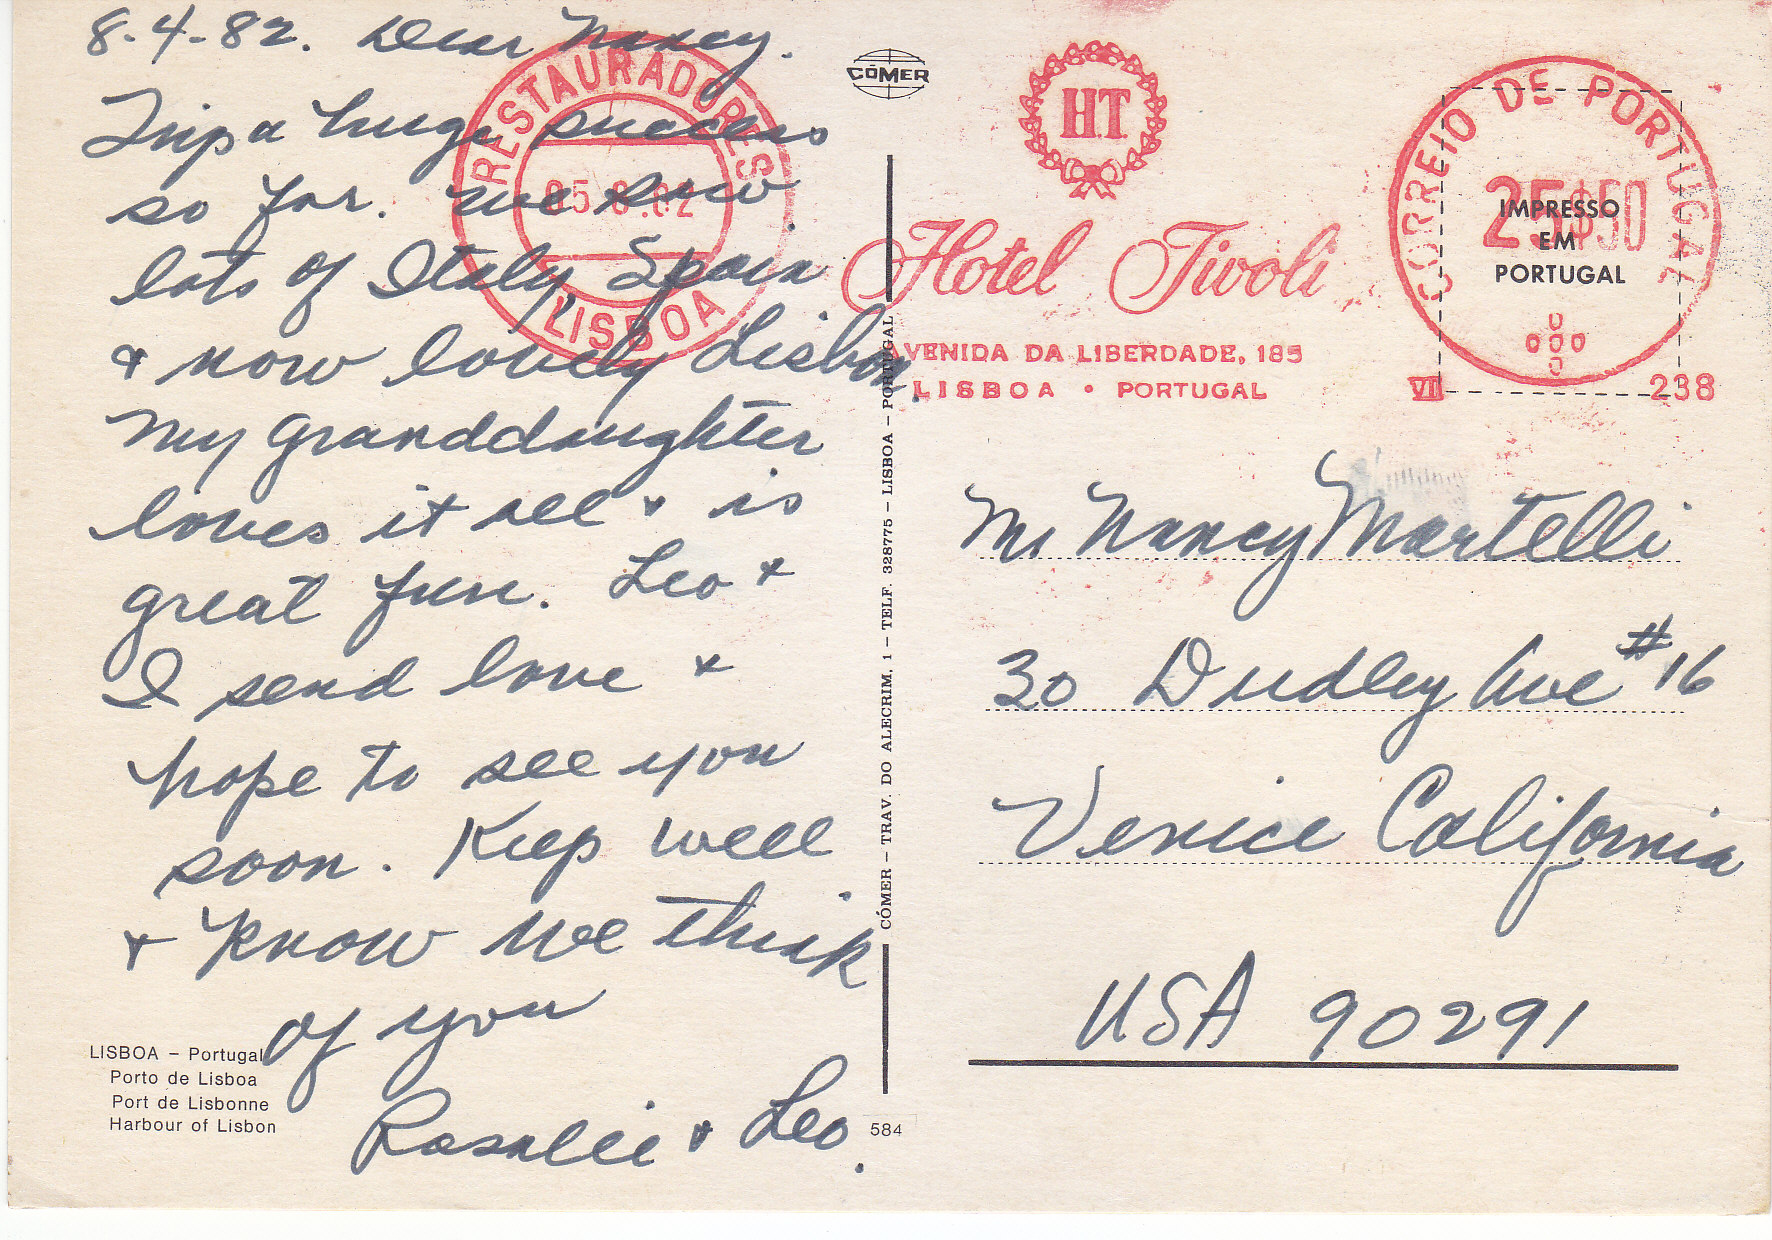 8-4-82. Dear Nancy.
Trip a huge success
so far. We saw
lots of Italy, Spain
& now lovely Lisbon.
My Granddaughter
loves it all & is
great fun. Leo &
I send love &
hope to see you
soon. Keep well
& know we think
of you
Rosalie & Leo.
LISBOA – Portugal
Porto de Lisboa
Port de Lisbonne
Harbour of Lisbon
RESTAURADORES
05.8.82
LISBOA
CÓMER
CÓMER – TRAV. DO ALECRIM, 1 – TELF. 328775 – LISBOA – PORTUGAL
584
HT
Hotel Tivoli
AVENIDA DA LIBERDADE, 185
LISBOA • PORTUGAL
CORREIO DE PORTUGAL
25$50
IMPRESSO
EM
PORTUGAL
VII 238
Ms Nancy Martelli
30 Dudley Ave #16
Venice California
USA 90291